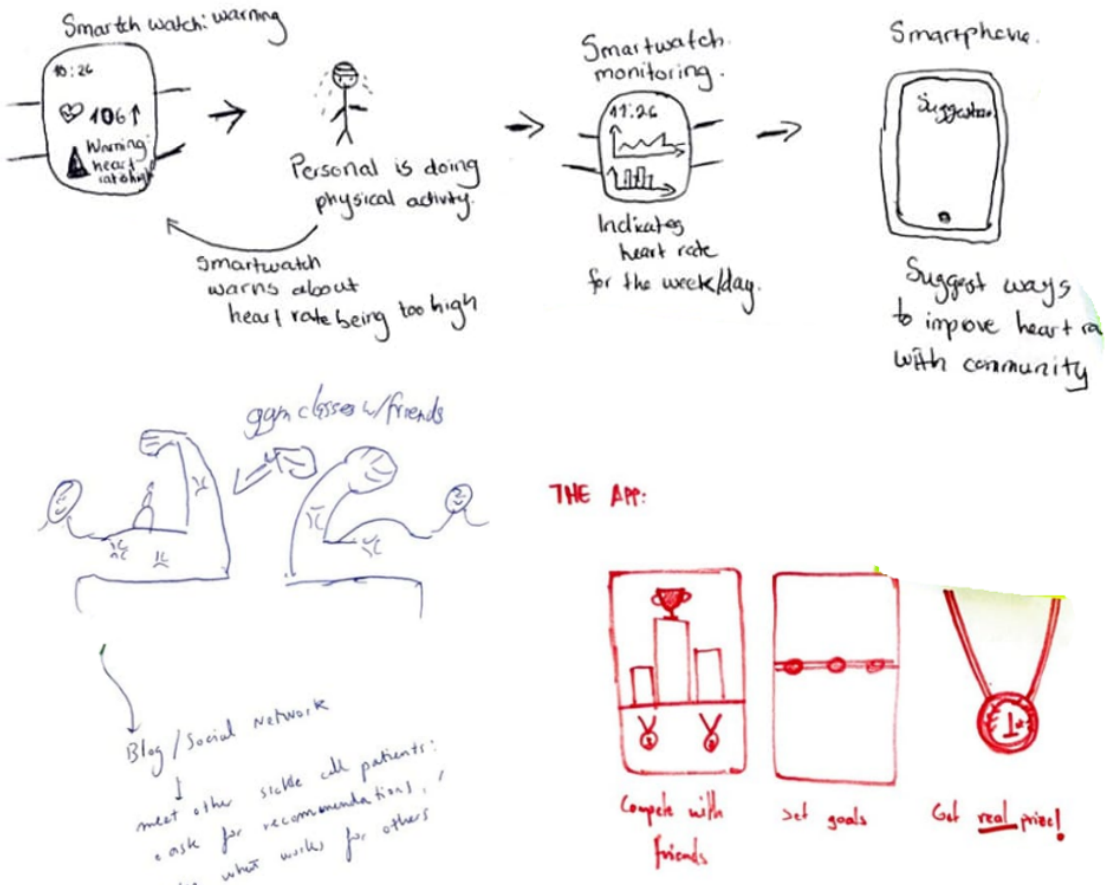 Smartch watch: warning
10:26
106↑
Warning:
heart
rate high
Personal is doing
physical activity.
Smartwatch
warns about
heart rate being too high
Smartwatch
monitoring.
11:26
Indicates
heart rate
for the week/day.
Smartphone.
Suggestion
Suggest ways
to improve heart ra
with community
gym classes w/friends
Blog / Social Network
meet other sickle cell patients:
ask for recommendations,
what works for others
THE APP:
1
Compete with
friends
Set goals
Get real prize!